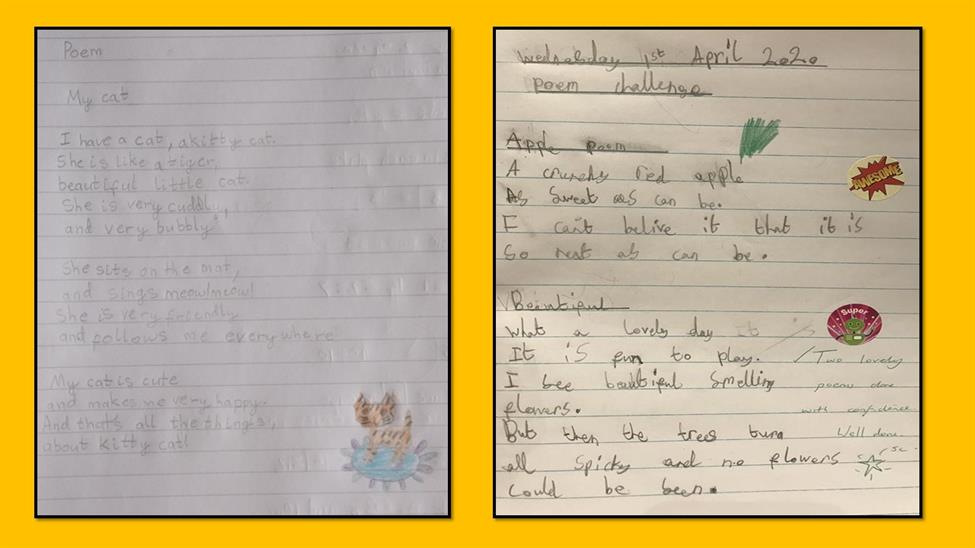 Poem
My cat
I have a cat, a kitty cat.
She is like a tiger,
beautiful little cat.
She is very cuddly,
and very bubbly
She sits on the mat,
and sings meow!meow!
She is very friendly
and follows me everywhere
My cat is cute
and makes me very happy.
And that's all the things,
about kitty cat!
Wednesday 1st April 2020
poem challenge
Apple poem
A crunchy red apple
As sweet as can be.
I can't belive it that it is
So neat as can be.
AWESOME
Beautiful
What a lovely day it is
It is fun to play.
I bee beautiful smelling
flowers.
But then the trees turn
all spicky and no flowers
could be been.
Super
✓ Two lovely
poems done
with confidence.
Well done.